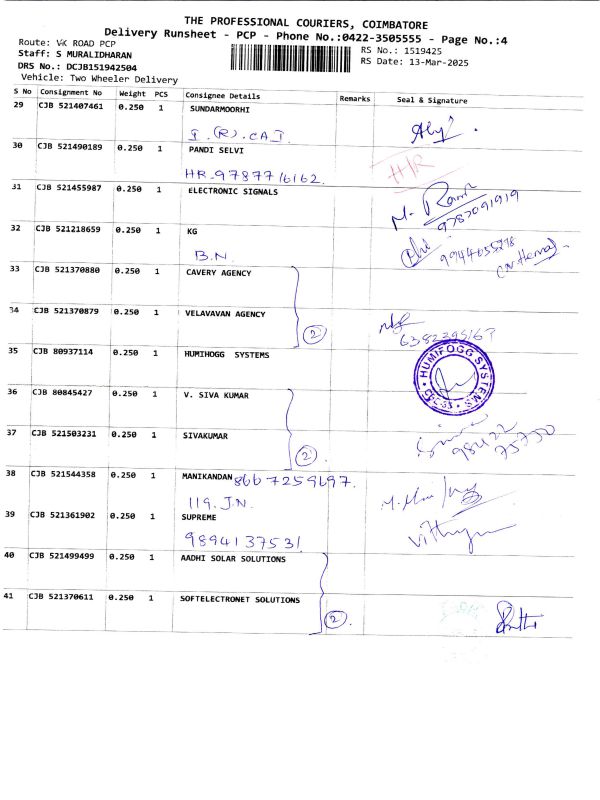 THE PROFESSIONAL COURIERS, COIMBATORE
Delivery Runsheet - PCP - Phone No.:0422-3505555 - Page No.:4
Route: VK ROAD PCP
RS No.: 1519425
Staff: S MURALIDHARAN
RS Date: 13-Mar-2025
DRS No.: DCJB151942504
Vehicle: Two Wheeler Delivery
S No Consignment No Weight PCS Consignee Details Remarks Seal & Signature
29 CJB 521407461 0.250 1 SUNDARMOORHI
I.(R).CAI
30 CJB 521490189 0.250 1 PANDI SELVI
HR-9787716162. HR
31 CJB 521455987 0.250 1 ELECTRONIC SIGNALS
9787091919
32 CJB 521218659 0.250 1 KG
B.N. 9944055278
33 CJB 521370880 0.250 1 CAVERY AGENCY
34 CJB 521370879 0.250 1 VELAVAVAN AGENCY
2
35 CJB 80937114 0.250 1 HUMIHOGG SYSTEMS
HUMIFOGG SYSTEMS
36 CJB 80845427 0.250 1 V. SIVA KUMAR
37 CJB 521503231 0.250 1 SIVAKUMAR
2
98422
75750
38 CJB 521544358 0.250 1 MANIKANDAN 8667259697.
119. J.N.
39 CJB 521361902 0.250 1 SUPREME
9894137531
40 CJB 521499499 0.250 1 AADHI SOLAR SOLUTIONS
41 CJB 521370611 0.250 1 SOFTELECTRONET SOLUTIONS
2